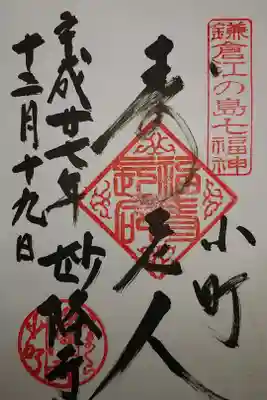 鎌倉江の島七福神
小町
寿老人
妙隆寺
平成廿七年
十二月十九日